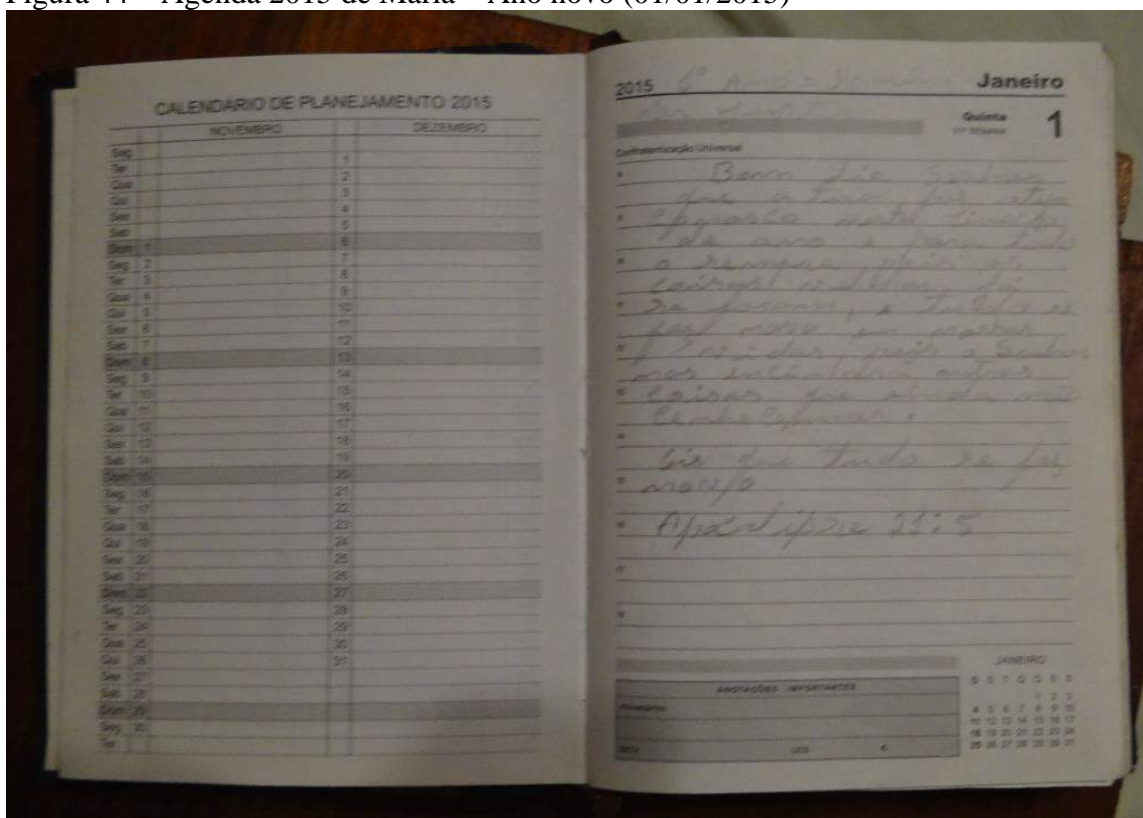 Figura 44 – Agenda 2015 de Maria – Ano novo (01/01/2015)
CALENDÁRIO DE PLANEJAMENTO 2015
NOVEMBRO DEZEMBRO
Seg
Ter 1
Qua 2
Qui 3
Sex 4
Sab 5
Dom 1 6
Seg 2 7
Ter 3 8
Qua 4 9
Qui 5 10
Sex 6 11
Sab 7 12
Dom 8 13
Seg 9 14
Ter 10 15
Qua 11 16
Qui 12 17
Sex 13 18
Sab 14 19
Dom 15 20
Seg 16 21
Ter 17 22
Qua 18 23
Qui 19 24
Sex 20 25
Sab 21 26
Dom 22 27
Seg 23 28
Ter 24 29
Qua 25 30
Qui 26 31
Sex 27
Sab 28
Dom 29
Seg 30
Ter
2015 1º Janeiro
Quinta 1
Confraternização Universal
Bom dia Senhor
que a tua
conosco neste
de ano e para tudo
o sempre, pois as
coisas velhas já
se foram, e tudo se
faz novo em nossas
vidas, pois o Senhor
nos outras
coisas que ainda não
conhecemos.
Eis que tudo se faz
novo
Apocalipse 21:5
JANEIRO
ANOTAÇÕES IMPORTANTES
D S T Q Q S S
1 2 3
4 5 6 7 8 9 10
11 12 13 14 15 16 17
18 19 20 21 22 23 24
25 26 27 28 29 30 31